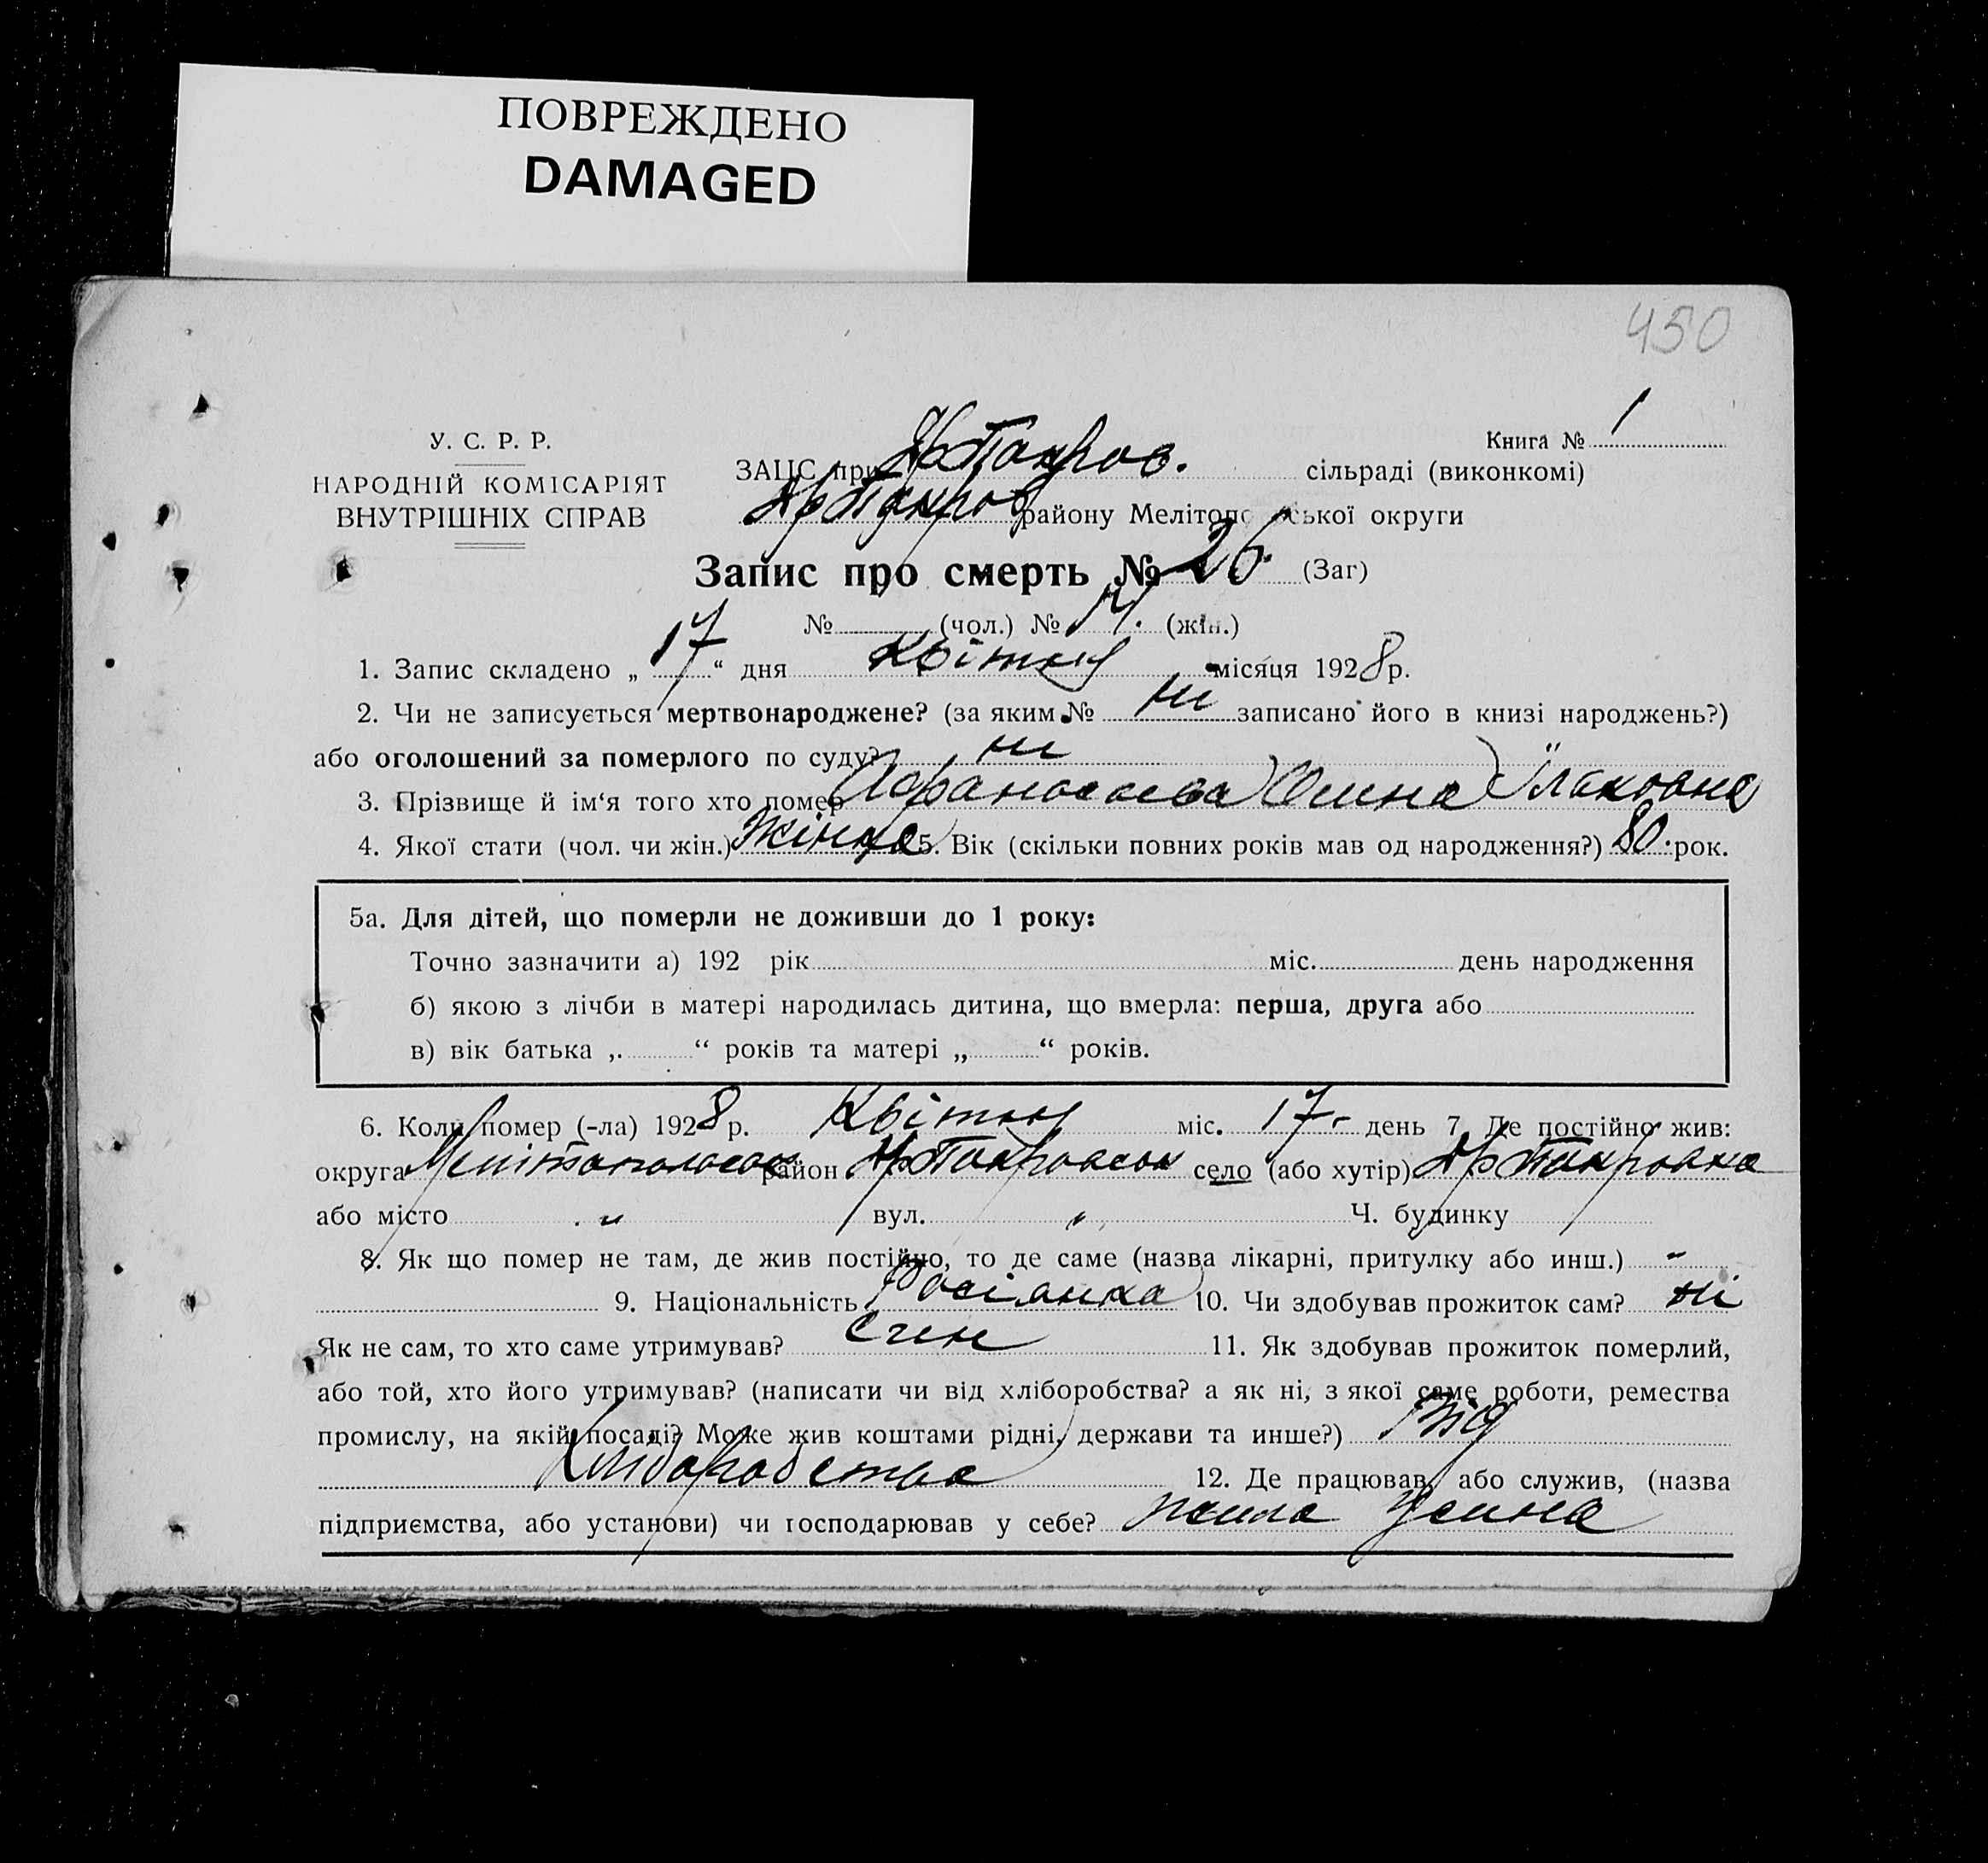 ПОВРЕЖДЕНО
DAMAGED
450
У. С. Р. Р.
НАРОДНІЙ КОМІСАРІЯТ
ВНУТРІШНІХ СПРАВ
Книга № 1
ЗАЦС при НрПокров. сільраді (виконкомі)
НрПокров району Мелітопо ської округи
Запис про смерть № 26 (Заг)
№ (чол.) № 14. (жін.)
1. Запис складено „ 17 “ дня Квітня місяця 1928 р.
2. Чи не записується мертвонароджене? (за яким № ні записано його в книзі народжень?)
або оголошений за померлого по суду? ні
3. Прізвище й ім‘я того хто помер Афанасьева
4. Якої стати (чол. чи жін.) Жінка 5. Вік (скільки повних років мав од народження?) 80. рок.
5а. Для дітей, що померли не доживши до 1 року:
Точно зазначити а) 192 рік міс. день народження
б) якою з лічби в матері народилась дитина, що вмерла: перша, друга або
в) вік батька „ “ років та матері „ “ років.
6. Коли помер (-ла) 1928 р. Квітня міс. 17 - день 7. Де постійно жив:
округа Мелітопольська район НрПокровськ село (або хутір) НрПокровка
або місто „ вул. „ Ч. будинку
8. Як що помер не там, де жив постійно, то де саме (назва лікарні, притулку або инш.) -
9. Національність Росіянка 10. Чи здобував прожиток сам? ні
Як не сам, то хто саме утримував? син 11. Як здобував прожиток померлий,
або той, хто його утримував? (написати чи від хліборобства? а як ні, з якої саме роботи, ремества
промислу, на якій посаді? Може жив коштами рідні, держави та инше?) Від
хліборобства 12. Де працював, або служив, (назва
підприємства, або установи) чи господарював у себе? жила у сина